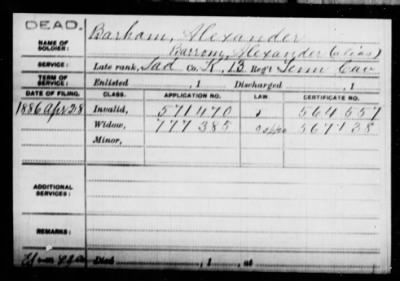 DEAD.
NAME OF SOLDIER: Barham, Alexander
Barrom, Alexander (alias)
SERVICE: Late rank, Sad Co. K, 13 Reg't Tenn Cav
TERM OF SERVICE: Enlisted , 1 Discharged , 1
DATE OF FILING. CLASS. APPLICATION NO. LAW. CERTIFICATE NO.
1886 Apr 28 Invalid, 571470 564557
Widow, 777385 567138
Minor,
ADDITIONAL SERVICES:
REMARKS:
Died , 1 , at